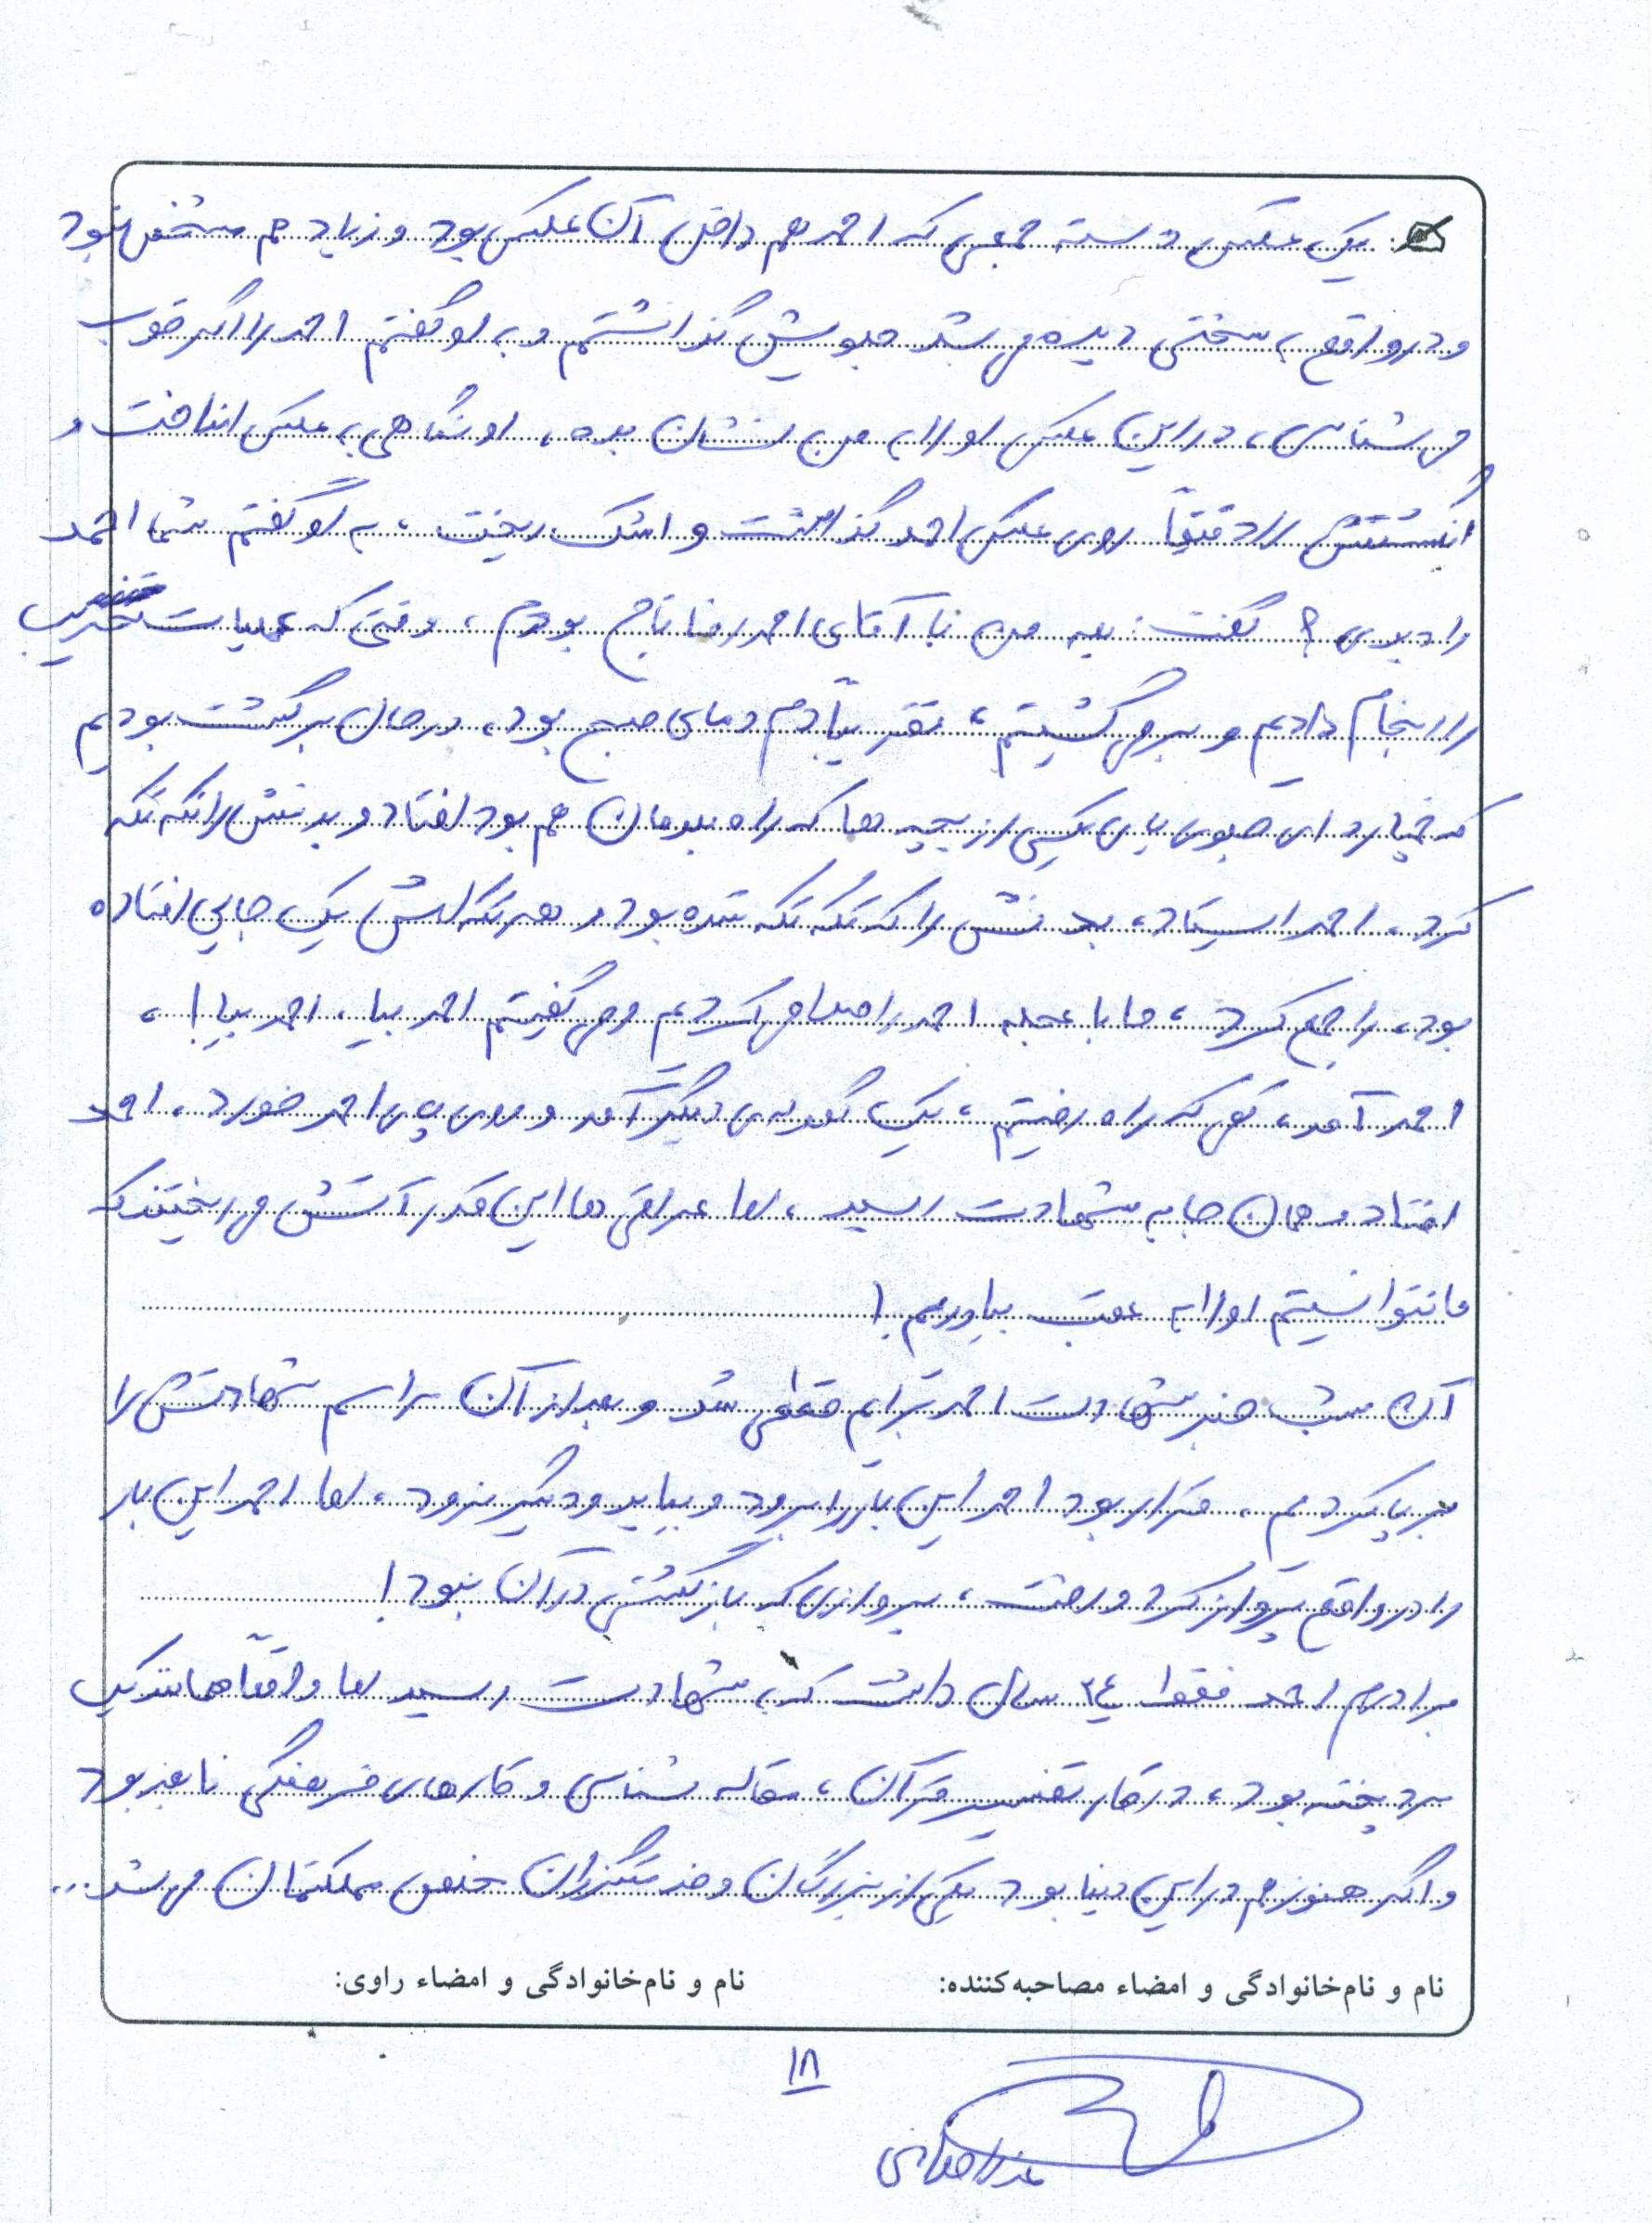 یک عکس دسته جمعی که احمد هم داخل آن عکس بود و زیاد هم مشخص نبود
و در واقع به سختی دیده می‌شد جلویش گذاشتم و به او گفتم احمد را اگر خوب
می‌شناسی، در این عکس او را به من نشان بده، او نگاهی به عکس انداخت و
انگشتش را دقیقاً روی عکس احمد گذاشت و اشک ریخت، به او گفتم شما احمد
را دیدی؟ گفت: بله من با آقای احمدرضا بودم، وقتی که عملیات تخریب
را انجام دادیم و برمی‌گشتیم، تقریباً دم دمای صبح بود، در حال برگشت بودیم
که خمپاره‌ای جلوی پای یکی از بچه‌ها که راه بلدمان هم بود افتاد و بدنش را تکه تکه
کرد، احمد ایستاد، بدنش را که تکه تکه شده بود و هر تکه‌اش یک جایی افتاده
بود، را جمع کرد، ما با عجله احمد را صدا می‌کردیم و می‌گفتیم احمد بیا، احمد بیا!،
احمد آمد، کمی که راه رفتیم، یک گلوله‌ی دیگر آمد و روی پای احمد خورد، احمد
افتاد و همان جا به شهادت رسید، اما عراقی‌ها این قدر آتش می‌ریختند که
ما نتوانستیم او را به عقب بیاوریم!
آن شب خبر شهادت احمد برایم قطعی شد و بعد از آن مراسم شهادتش را
برپا کردیم، قرار بود احمد این بار را برود و بیاید و دیگر نرود، اما احمد این بار
را در واقع پرواز کرد و رفت، پروازی که بازگشتی در آن نبود!
برادرم احمد فقط ۲۴ سال داشت که به شهادت رسید اما واقعاً همانند یک
مرد پخته بود، در کار تفسیر قرآن، مقاله شناسی و کارهای فرهنگی نابغه بود
و اگر هنوز هم در این دنیا بود یکی از بزرگان و خدمتگزاران خلق مملکتمان می‌شد...
نام و نام‌خانوادگی و امضاء مصاحبه‌کننده:
نام و نام‌خانوادگی و امضاء راوی:
۱۸